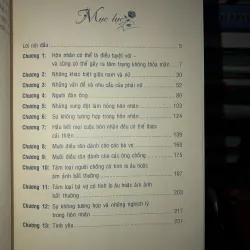 Mục lục
Lời nói đầu 5
Chương 1: Hôn nhân có thể là điều tuyệt vời -
và cũng có thể gây ra tâm trạng không thỏa mãn 7
Chương 2: Những khác biệt giữa nam và nữ
Chương 3: Những vấn đề và nhu cầu của phái nữ
Chương 4: Người đàn ông
Chương 5: Những xung đột làm hỏng hôn nhân
Chương 6: Sự không tương hợp trong hôn nhân
Chương 7: Hầu hết mọi cuộc hôn nhân đều có thể được
cải thiện
Chương 8: Mười điều răn dành cho các bà vợ
Chương 9: Mười điều răn dành cho các ông chồng
Chương 10: Tám loại người chồng có tính lo âu hoặc ám
ảnh bất thường
Chương 11: Tám loại bà vợ có tính lo âu hoặc ám ảnh
bất thường 203
Chương 12: Sự không tương hợp và những nghịch lý
trong hôn nhân 217
Chương 13: Tình yêu 237